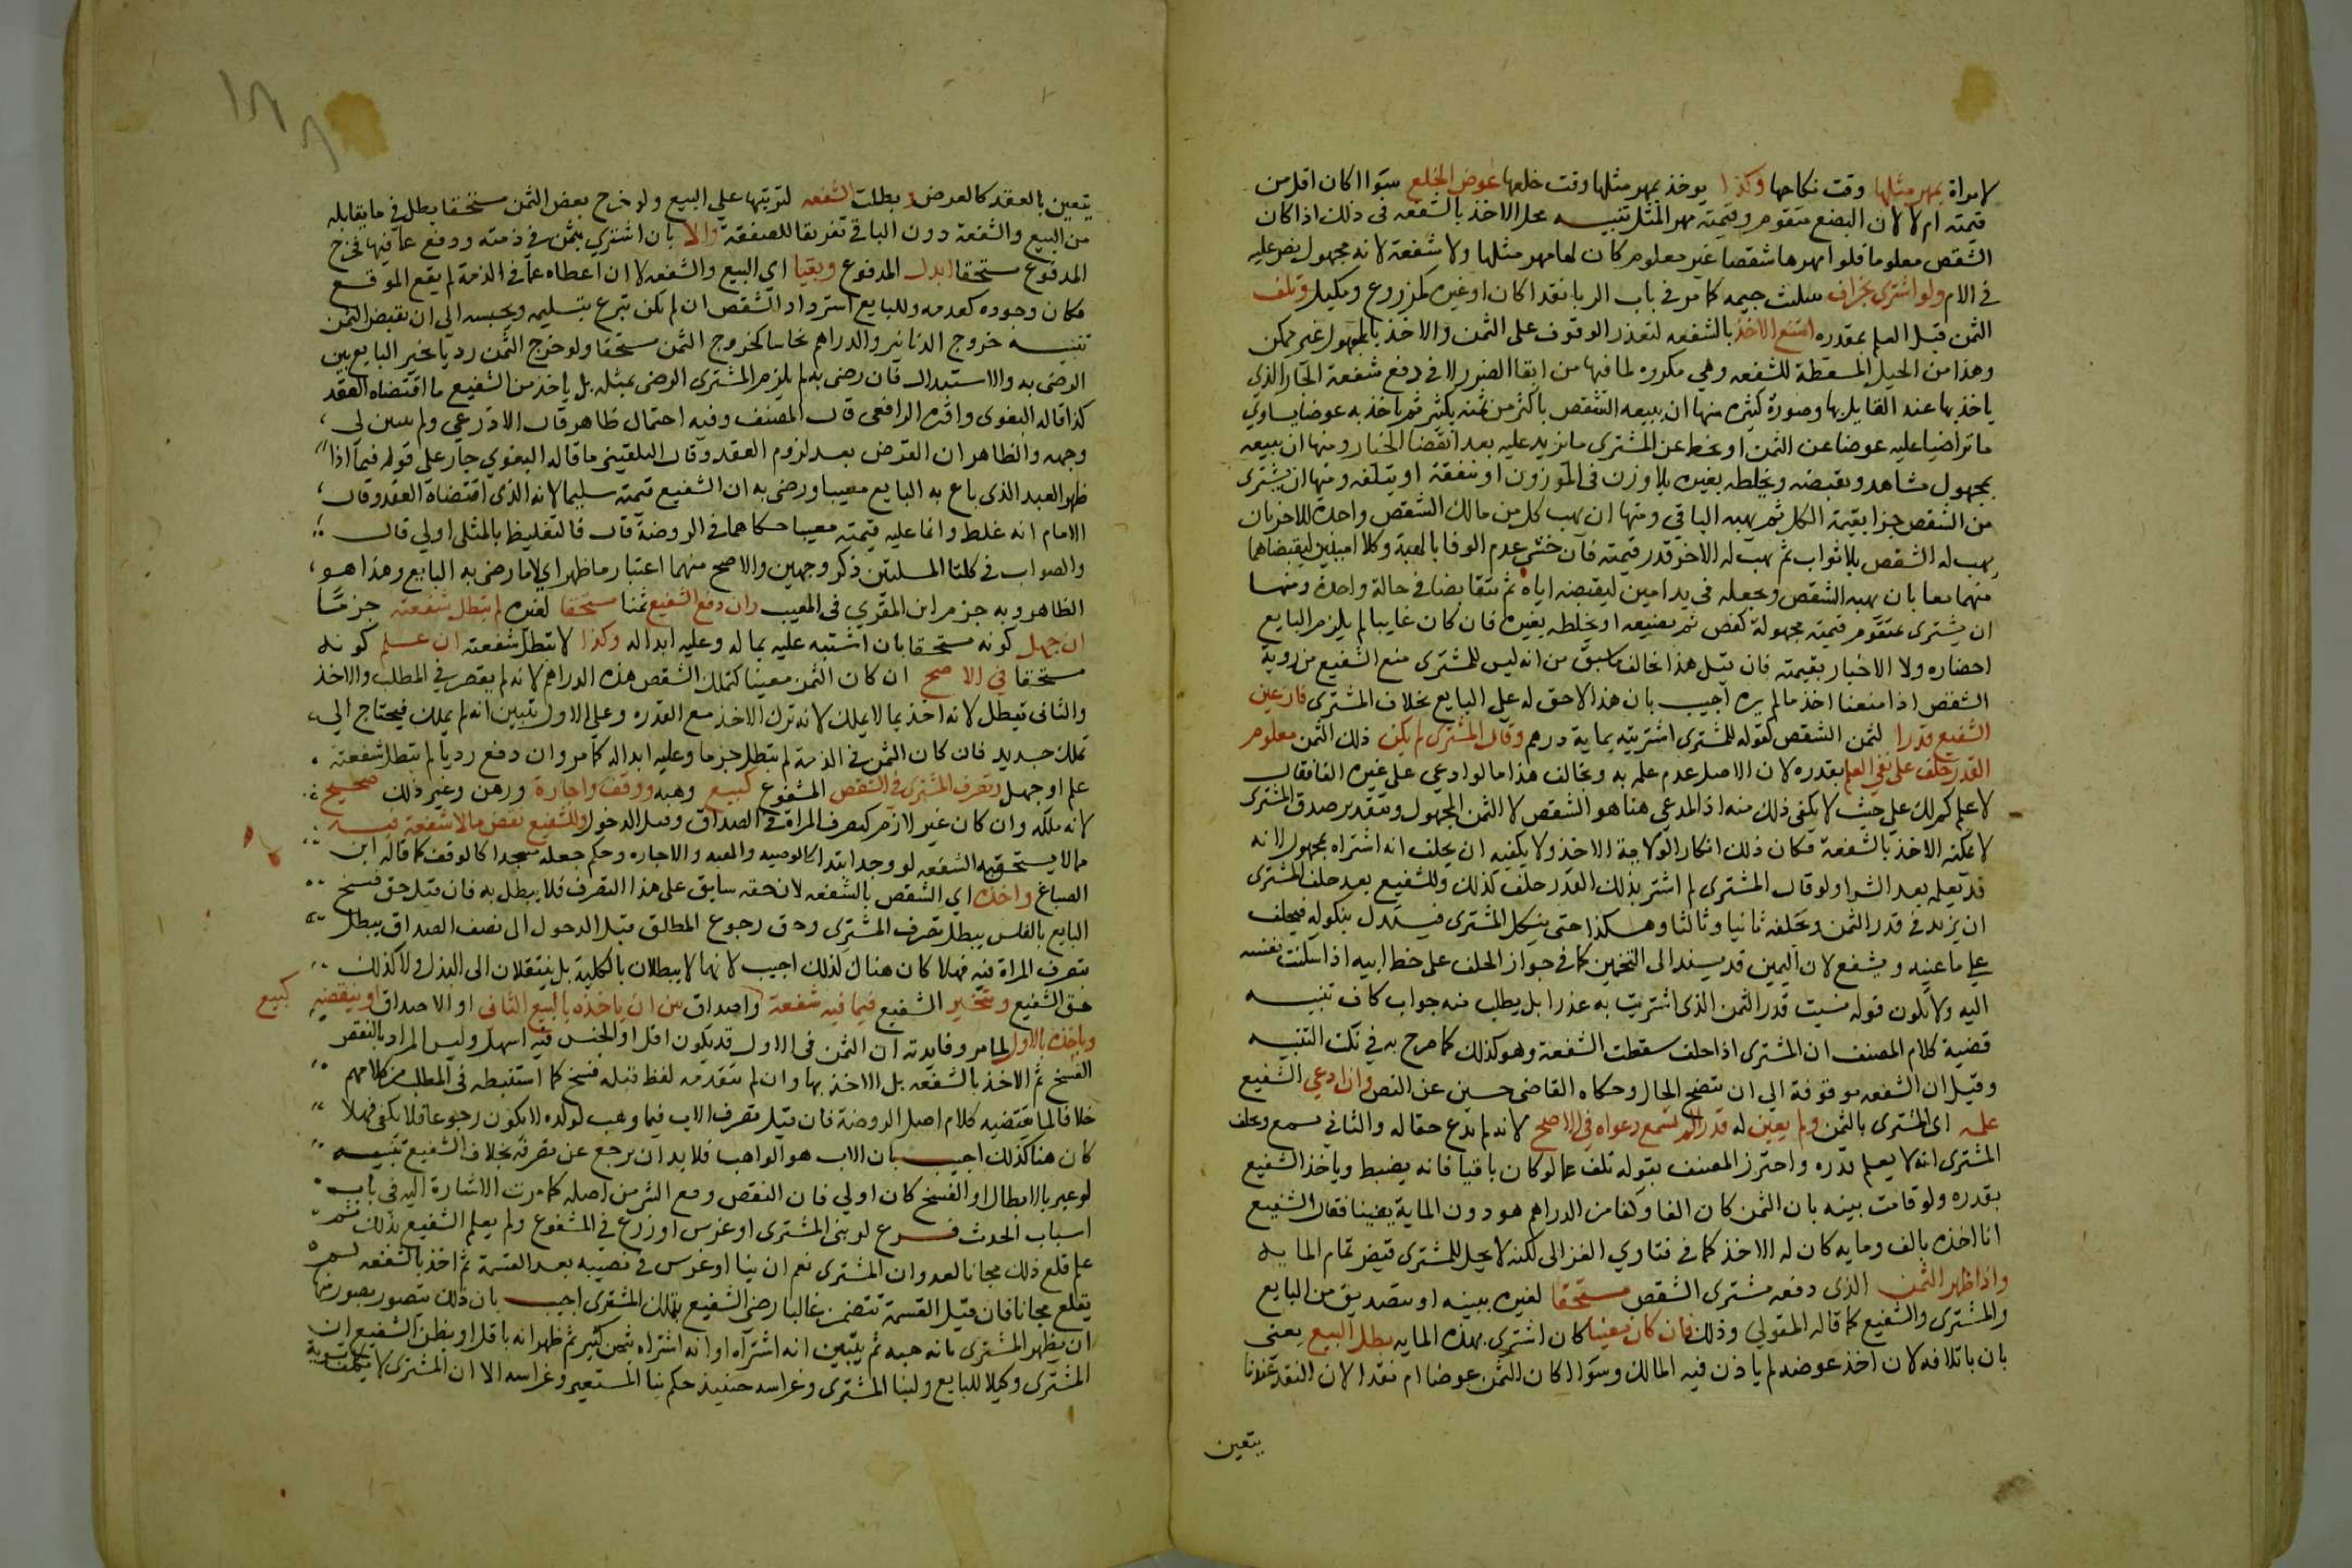 لامراة بمهر مثلها وقت نكاحها وكذا يوخذ بمهر مثلها وقت خلعها عوض الخلع سوا اكان اقل من
قيمته ام لا لان البضع متقوم وقيمته مهر المثل تنبيه محل الاخذ بالشفعه فى ذلك اذا كان
الشقص معلوما فلو امهرها شقصا غير معلوم كان لها مهر مثلها ولا شفعة لانه مجهول نص عليه
فى الام ولو اشترى بجزاف بتثليث جيمه كما مر فى باب الربا نقدا كان او غيره كمزروع ومكيل وتلف
الثمن قبل العلم بقدره امتنع الاخذ بالشفعه لتعذر الوقوف على الثمن والاخذ بالمجهول غير ممكن
وهذا من الحيل المسقطة للشفعه وهي مكروه لما فيها من ابقا الضرر لا فى دفع شفعة الجار الذي
ياخذ بها عند القايل بها وصورة كثيره منها ان يبيعه الشقص باكثر من ثمنه بكثير ثم ياخذ به عوضا يساوي
ما تراضيا عليه عوضا عن الثمن او يحط عن المشترى ما يزيد عليه بعد انقضا الخيار ومنها ان يبيعه
بمجهول مشاهد ويقبضه ويخلطه بغيره بلا وزن فى الموزون او ينفقه او يتلفه ومنها ان يشترى
من الشقص جزا بقيمة الكل ثم يهبه الباقي ومنها ان يهب كل من مالك الشقص واحده للاخر بان
يهب له الشقص بلا ثواب ثم يهب له الاخر قدر قيمته فان خشي عدم الوفا بالهبة وكلا امينين ليقبضاهما
منهما معا بان يهبه الشقص ويجعله فى يد امين ليقبضه اياه ثم يتقابضا فى حالة واحدة ومنها
ان يشترى بمتقوم قيمته مجهولة كفص ثم يضيعه او يخلطه بغيره فان كان غايبا لم يلزم البايع
احضاره ولا الاخبار بقيمته فان قيل هذا يخالف ما سبق من انه ليس للمشترى منع الشفيع من روية
الشقص اذا منعنا اخذ ما لم يره اجيب بان هذا لا حق له على البايع بخلاف المشترى فان عين
الشفيع قدرا لثمن الشقص كقوله للمشترى اشتريته بماية درهم وقال المشترى لم يكن ذلك الثمن معلوم
القدر حلف على نفي العلم بقدره لان الاصل عدم علمه به ويخالف هذا ما لو ادعي على غيره الفا فقال
لا علم كم لك علي حيث لا يكفى ذلك منه اذ المدعي هنا هو الشقص لا الثمن المجهول وبتقدير صدق المشترى
لا يمكنه الاخذ بالشفعة فكان ذلك انكارا لولاية الاخذ ولا يكفيه ان يحلف انه اشتراه بمجهول لانه
قد يعلمه بعد الشرا ولو قال المشترى لم اشتر بذلك القدر حلف كذلك وللشفيع بعد حلف المشترى
ان يزيد فى قدر الثمن ويحلفه ثانيا وثالثا وهكذا حتى ينكل المشترى فيستدل بنكوله فيحلف
علي ما عينه ويشفع لان اليمين قد يستند الى التخمين كما فى جواز الحلف على خط ابيه اذا سكنت نفسه
اليه ولا يكون قوله نسيت قدر الثمن الذى اشتريت به عذرا بل يطلب منه جواب كاف تنبيه
قضية كلام المصنف ان المشترى اذا حلف سقطت الشفعة وهو كذلك كما صرح به فى نكت التنبيه
وقيل ان الشفعه موقوفة الي ان يتضح الحال وحكاه القاضى حسين عن النص وان ادعي الشفيع
علمه اى المشترى بالثمن ولم يعين له قدرا لم تسمع دعواه فى الاصح لانه لم يدع حقا له والثاني يسمع ويحلف
المشترى انه لا يعلم قدره واحترز المصنف بقوله تلف عما لو كان باقيا فانه يضبط وياخذ الشفيع
بقدره ولو قامت بينه بان الثمن كان الفا وكفا من الدراهم هو دون الماية يقينا فقال الشفيع
انا اخذه بالف وماية كان له الاخذ كما فى فتاوي الغزالى لكنه لا يحل للمشترى قبض تمام المايه
واذا ظهر الثمن الذى دفعه مشترى الشقص مستحقا لغيره ببينه او بتصديق من البايع
والمشترى والشفيع كما قاله المتولي وذلك فان كان معينا كان اشترى بهذه المايه بطل البيع يعني
بان باتلافه لان اخذ عوضه لم ياذن فيه المالك وسوا اكان الثمن عوضا ام نقدا لان النقد عندنا
يتعين
يتعين بالعقد كالعرض و بطلت الشفعه لترتبها على البيع ولو خرج بعض الثمن مستحقا بطل فى ما يقابله
من البيع والشفعة دون الباقي تفريقا للصفقة والا بان اشتري بثمن فى ذمته ودفع عما فيها فخرج
المدفوع مستحقا ابدل المدفوع وبقيا اي البيع والشفعه لان اعطاه عما فى الذمة لم يقع الموقع
فكان وجوده كعدمه وللبايع استرداد الشقص ان لم يكن تبرع بتسليمه ويحبسه الي ان يقبض الثمن
تنبيه خروج الدنانير والدراهم نحاسا كخروج الثمن مستحقا ولو خرج الثمن رديا تخير البايع بين
الرضى به والاستبدال فان رضى به لم يلزم المشترى الرضى بمثله بل ياخذ من الشفيع ما اقتضاه العقد
كذا قاله البغوى واقره الرافعى قال المصنف وفيه احتمال ظاهر قال الاذرعي ولم يبين لي
وجهه والظاهر ان الفرض بعد لزوم العقد وقال البلقينى ما قاله البغوي جار على قوله فيما اذا
ظهر العبد الذى باع به البايع معيبا ورضى به ان الشفيع قيمته سليما لانه الذى اقتضاه العقد وقال
الامام انه غلط وانما عليه قيمته معيبا حكاهما فى الروضة قال فالتغليظ بالمثلى اولي قال
والصواب فى كلتا المسلتين ذكر وجهين والاصح منهما اعتبار ما ظهر اي لا ما رضى به البايع وهذا هو
الظاهر وبه جزم ابن المقري فى المعيب وان دفع الشفيع ثمنا مستحقا لغيره لم تبطل شفعته جزما
ان جهل كونه مستحقا بان اشتبه عليه بماله وعليه ابداله وكذا لا تبطل شفعته ان علم كونه
مستحقا في الاصح ان كان الثمن معينا كتملك الشقص بهذه الدراهم لانه لم يقصر فى الطلب والاخذ
والثانى تبطل لانه اخذ بما لا يملك لانه ترك الاخذ مع القدره وعلي الاول يتبين انه لم يملك فيحتاج الي
تملك جديد فان كان الثمن فى الذمة لم تبطل جزما وعليه ابداله كما مر وان دفع رديا لم تبطل شفعته
علم او جهل وتصرف المشترى فى الشقص المشفوع كبيع وهبه ووقف واجارة ورهن وغير ذلك صحيح
لانه ملكه وان كان غير لازم كتصرف المراة فى الصداق وقبل الدخول وللشفيع نقض ما لا شفعة فيه
مما لا يستحق به الشفعه لو وجد ابتدا كالوصيه والهبه والاجاره وحكم جعله مسجدا كالوقف كما قاله ابن
الصباغ واخذه اي الشقص بالشفعه لان حقه سابق على هذا التصرف فلا يبطل به فان قيل حق فسخ
البايع بالفلس يبطل بتصرف المشترى وحق رجوع المطلق قبل الدخول الى نصف الصداق يبطل
بتصرف المراة فيه فهلا كان هنا كذلك اجيب لانهما لا يبطلان بالكلية بل ينتقلان الى البدل ولا كذلك
حق الشفيع ويتخير الشفيع فيما فيه شفعة كبيع واصداق بين ان ياخذه بالبيع الثانى او الاصداق او ينقضه
وياخذه بالاول لما مر وفايدته ان الثمن فى الاول قد يكون اقل او الجنس فيه اسهل وليس المراد بالنقض
الفسخ ثم الاخذ بالشفعه بل الاخذ بها وان لم يتقدمه لفظ قبله فسخ كما استنبطه فى المطلب من كلامهم
خلافا لما يقتضيه كلام اصل الروضة فان قيل تصرف الاب فيما وهب لولده لا يكون رجوعا فلا يكفى فهلا
كان هنا كذلك اجيب بان الاب هو الواهب فلا بد ان يرجع عن تصرفه بخلاف الشفيع تنبيه
لو عبر بالابطال او الفسخ كان اولي فان النقض رفع الشي من اصله كما مرت الاشارة اليه فى باب
اسباب الحدث فرع لو بنى المشترى او غرس او زرع فى المشفوع ولم يعلم الشفيع بذلك ثم
علم قلع ذلك مجانا لعدوان المشترى نعم ان بنا او غرس فى نصيبه بعد القسمة ثم اخذ بالشفعه لم
يقلع مجانا فان قيل القسمة تتضمن غالبا رضى الشفيع بتملك المشترى اجيب بان ذلك يتصور بصور منها
ان يظهر المشترى بانه هبه ثم يتبين انه اشتراه او انه اشتراه بثمن كثير ثم ظهر انه باقل او يظن الشفيع ان
المشترى وكيلا للبايع ولبنا المشترى وغراسه حينيذ حكم بنا المستعير وغراسه الا ان المشترى لا يكلف تسوية